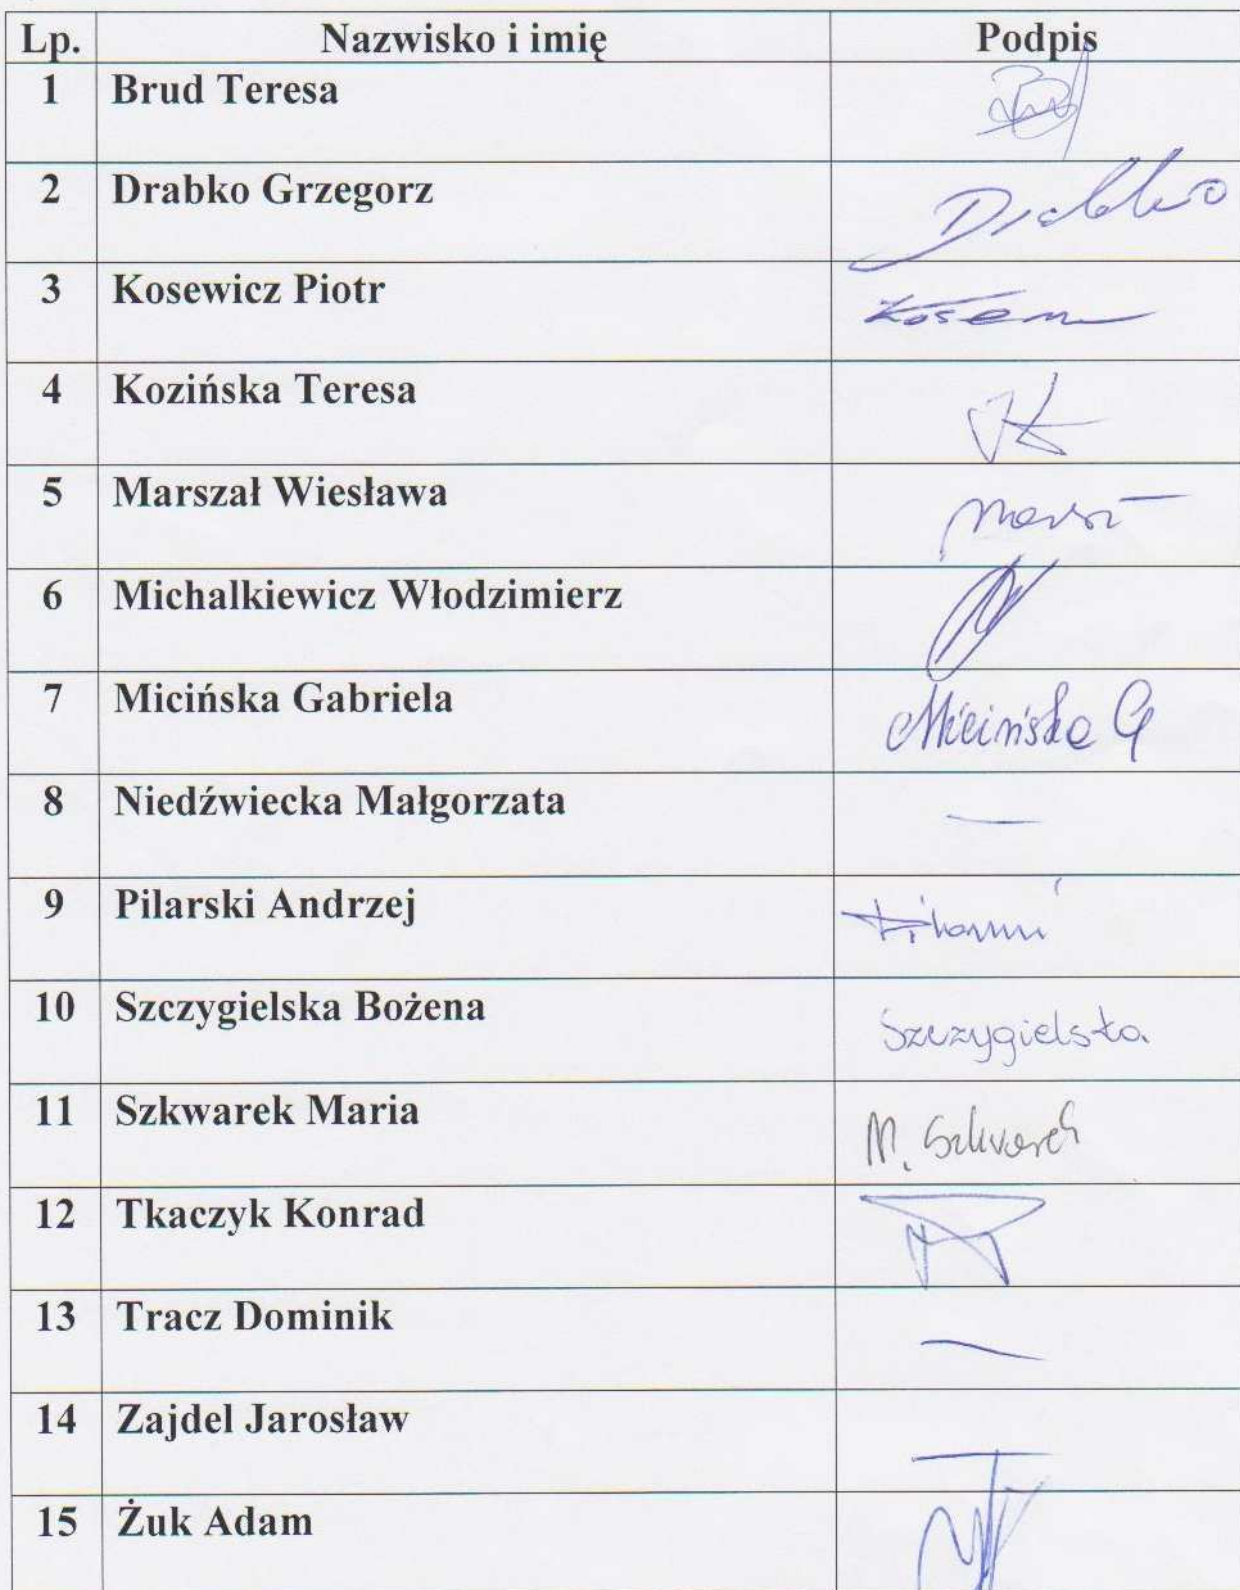 Lp. Nazwisko i imię Podpis
1 Brud Teresa
2 Drabko Grzegorz Drabko
3 Kosewicz Piotr
4 Kozińska Teresa
5 Marszał Wiesława
6 Michalkiewicz Włodzimierz
7 Micińska Gabriela Micińska G
8 Niedźwiecka Małgorzata —
9 Pilarski Andrzej
10 Szczygielska Bożena Szczygielska
11 Szkwarek Maria M. Szkwarek
12 Tkaczyk Konrad
13 Tracz Dominik —
14 Zajdel Jarosław —
15 Żuk Adam